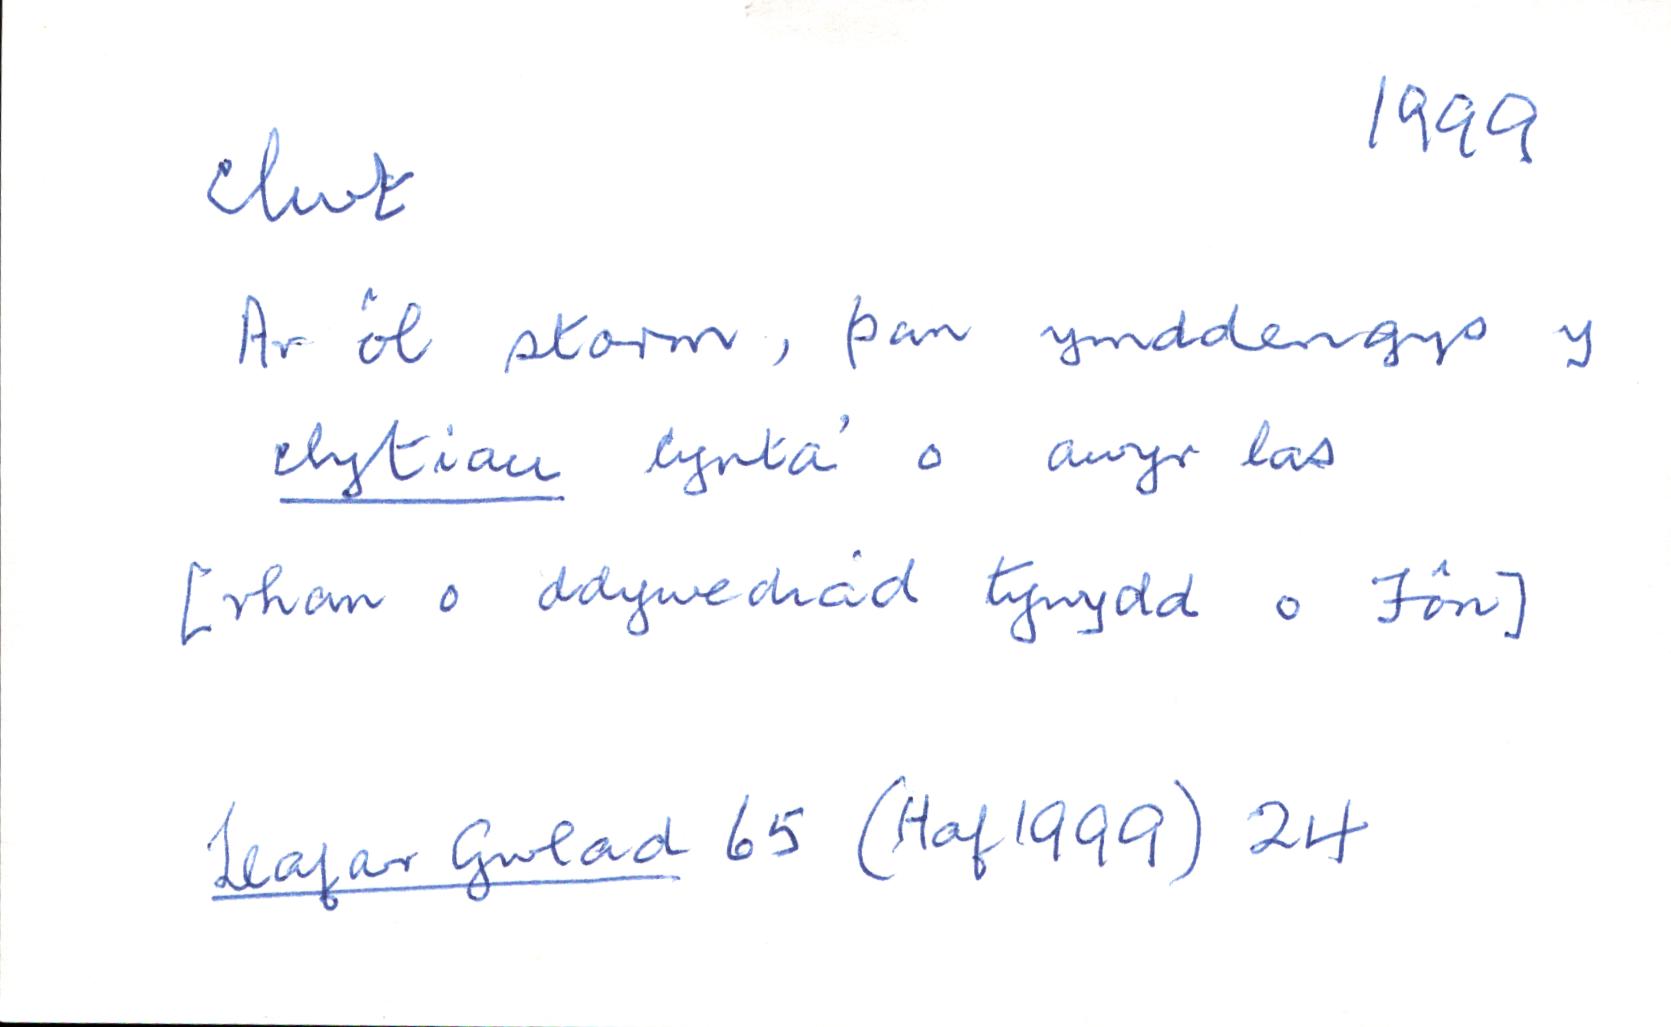 1999
clwt
Ar ôl storm, pan ymddengys y
clytiau cynta' o awyr las
[rhan o ddywediad tywydd o Fôn]
Llafar Gwlad 65 (Haf 1999) 24